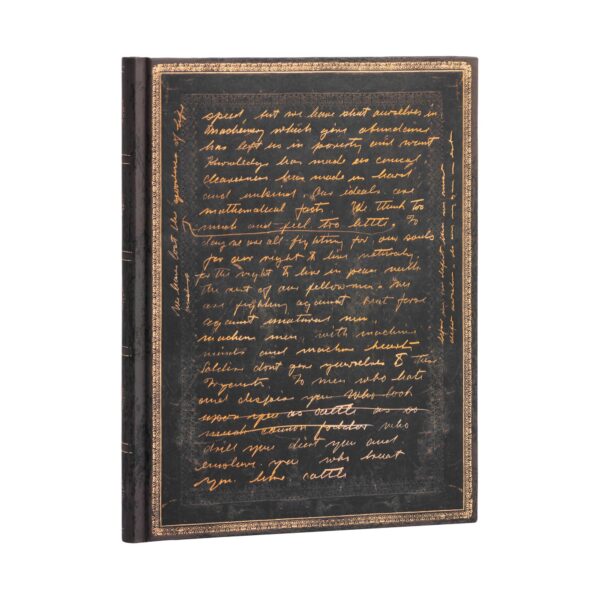 speed, but we have shut ourselves in
Machinery which gives abundance
has left us in poverty and want
Knowledge has made us cynical
cleverness has made us hard
and unkind. Our ideals are
mathematical facts. We think too
much and feel too little. To
day we are all fighting for our souls
for our right to live naturally,
for the right to live in peace with
the rest of our fellowmen. We
are fighting against brut force
against unatural men,
machine men, with machine
minds and machine hearts
Soldiers dont give yourselves to these
To men who hate
and despise you who look
upon you as cattle as
cannon fodder who
drill you diet you and
enslave you who treat
you like cattle
We have lost the of life